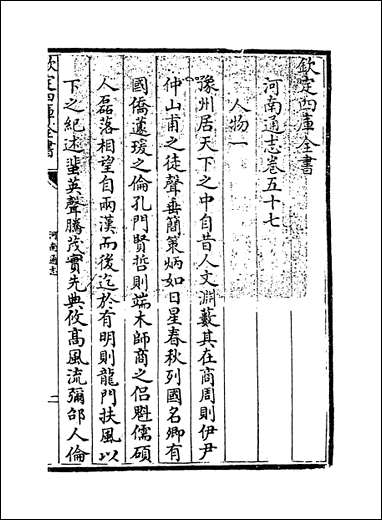 欽定四庫全書
河南通志卷五十七
人物一
豫州居天下之中自昔人文淵藪其在商周則伊尹
仲山甫之徒聲垂簡策炳如日星春秋列國名卿有
國僑蘧瑗之倫孔門賢哲則端木師商之侶魁儒碩
人磊落相望自兩漢而後迄於有明則龍門扶風以
下之紀述蜚英聲騰茂實先典攸髙風流彌邵人倫
欽定四庫全書
河南通志